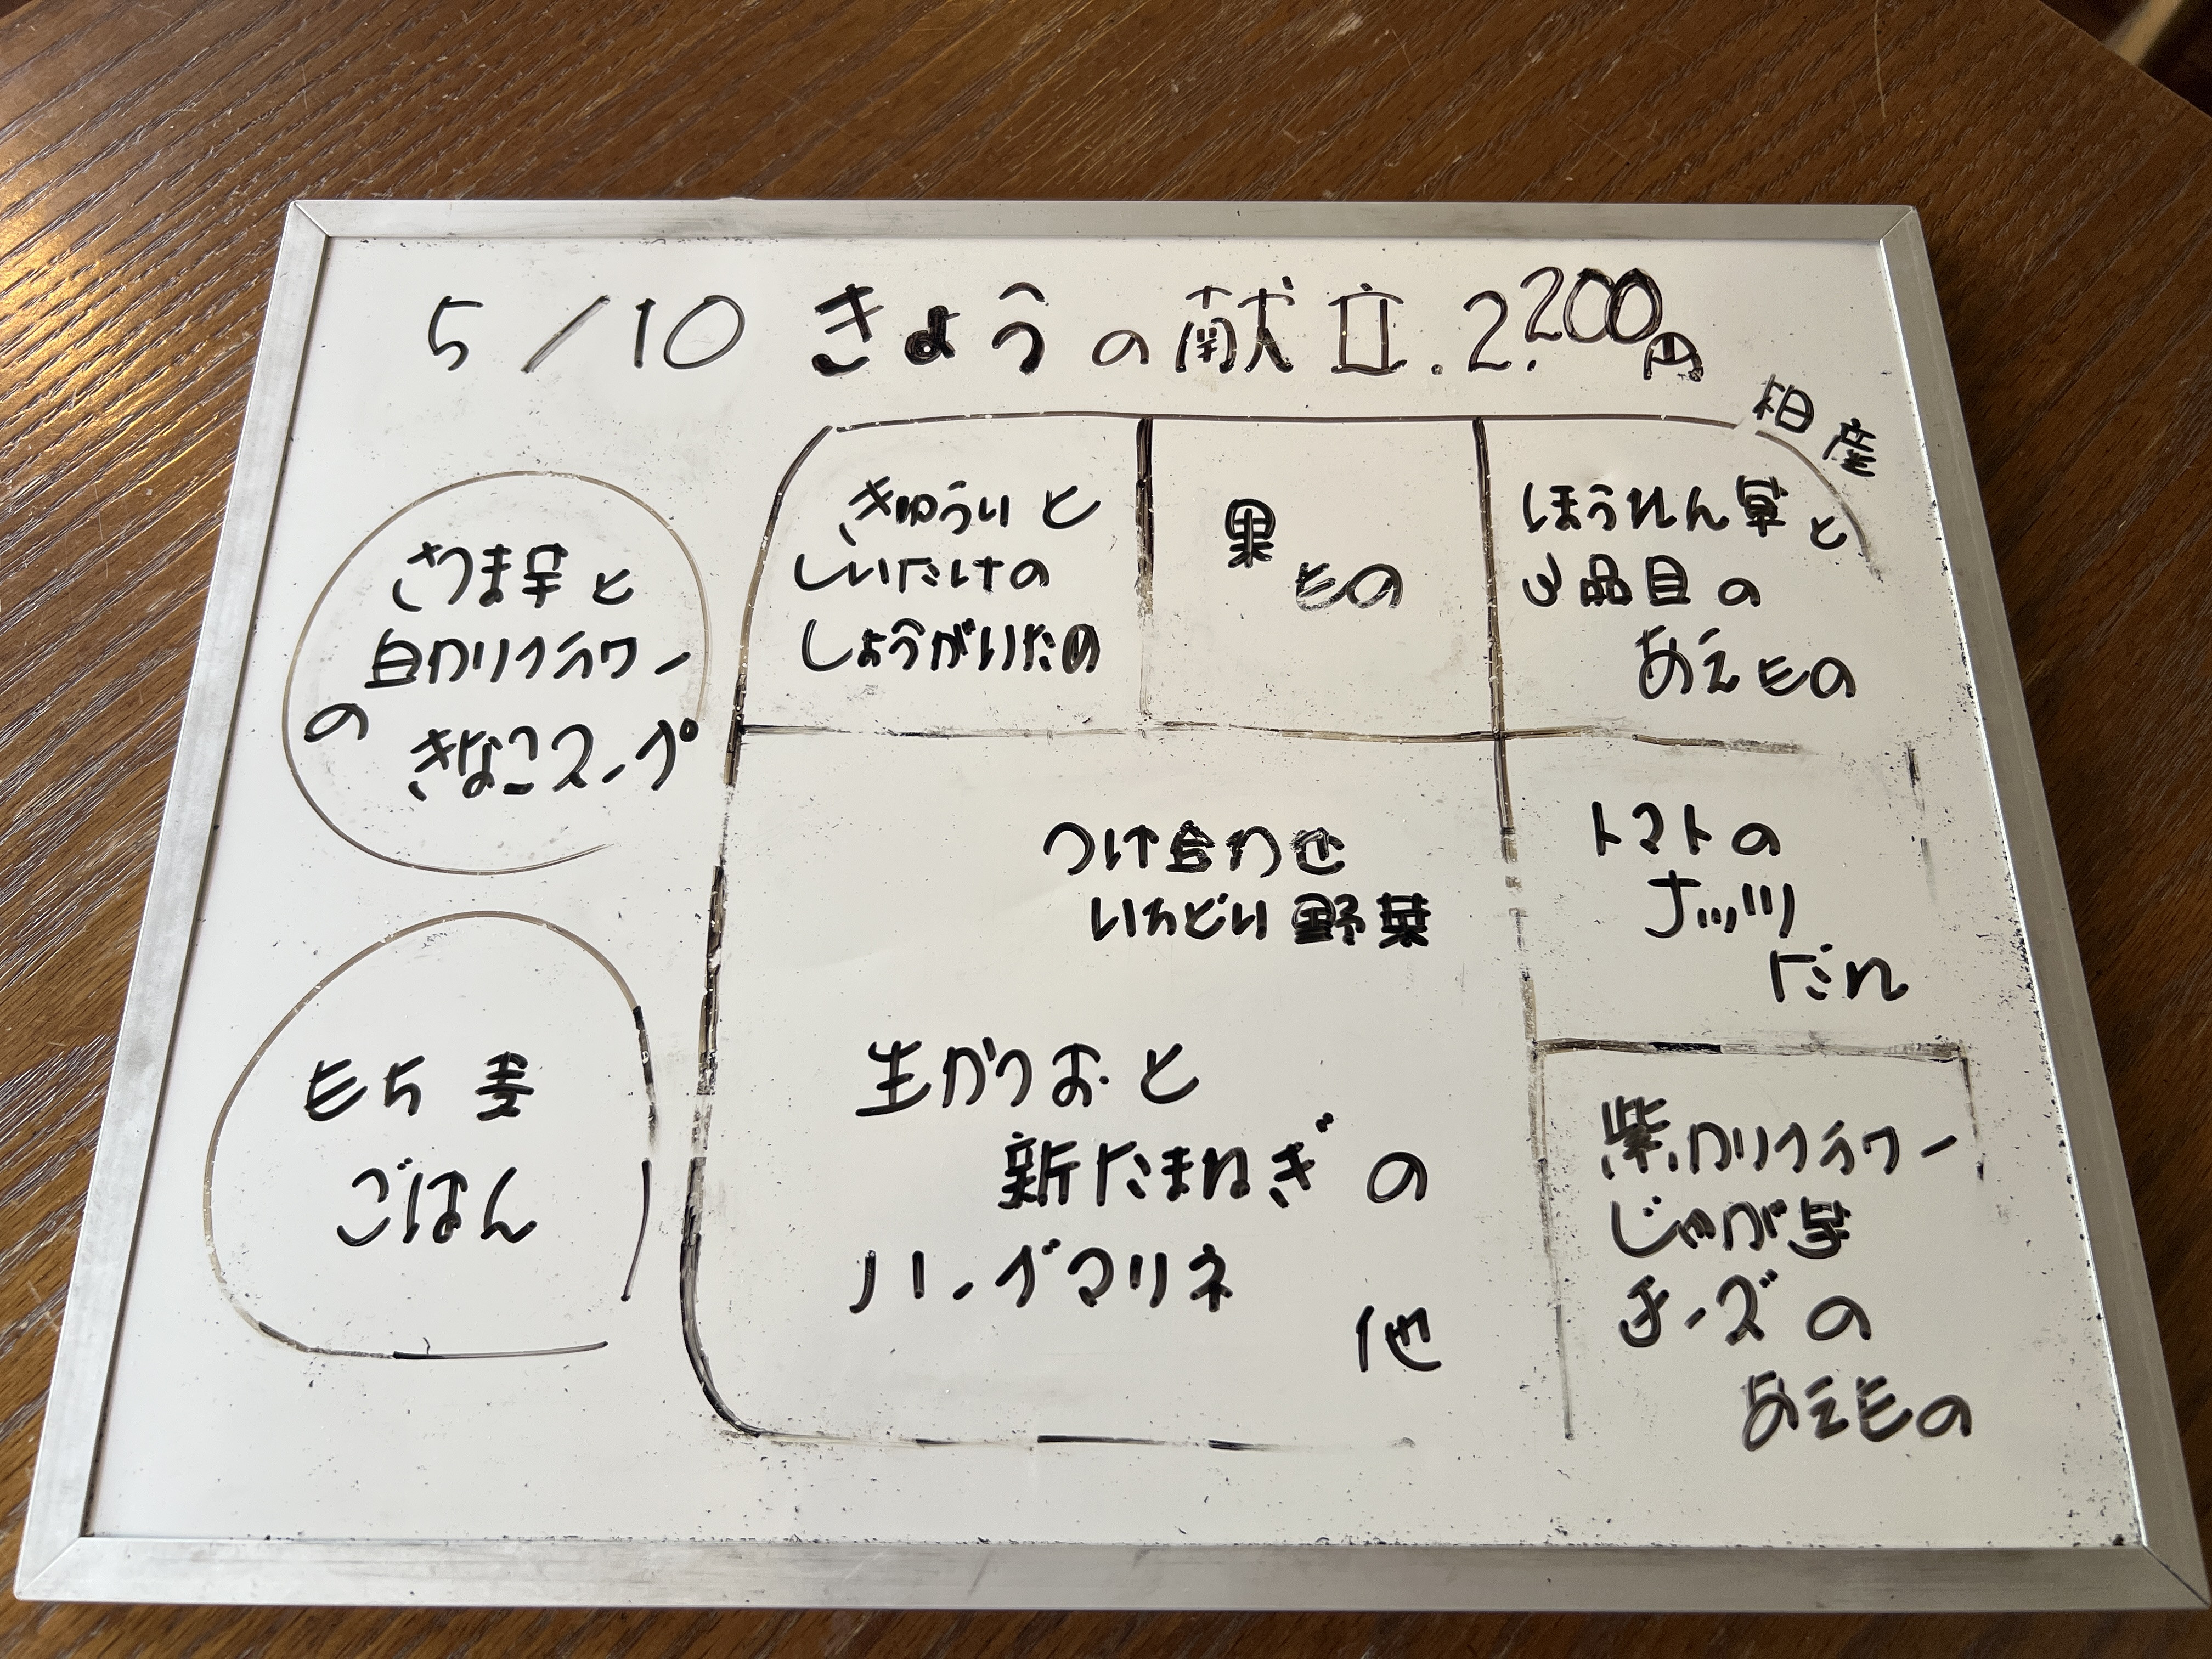 5/10 きょうの献立.2.200円
柏産
さつま芋と
白カリフラワー
の きなこスープ
きゅうりと
しいたけの
しょうがいため
果もの
ほうれん草と
3品目の
あえもの
つけ合わせ
いろどり野菜
トマトの
ナッツ
だれ
もち麦
ごはん
生かつおと
新たまねぎの
ハーブマリネ
他
紫カリフラワー
じゃが芋
チーズの
あえもの